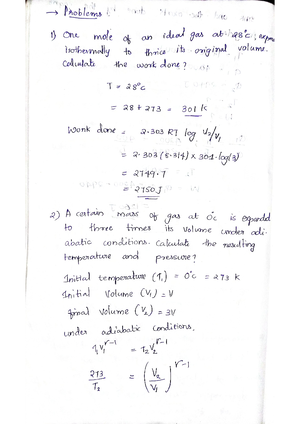 → Problems
1) One mole of an ideal gas at 28°C,
Isothermally to thrice its original volume.
Calculate the work done?
T = 28°C
= 28 + 273 = 301 K
Work done = 2.303 RT log V2/V1
= 2.303 (8.314) × 301 log(3)
= 2749.7
= 2750 J
2) A certain mass of gas at 0°C is expanded
to three times its volume under adi-
abatic conditions. Calculate the resulting
temperature and pressure?
Initial temperature (T1) = 0°C = 273 K
Initial Volume (V1) = V
final Volume (V2) = 3V
under adiabatic conditions,
T1V1^r-1 = T2V2^r-1
273/T2 = (V2/V1)^r-1